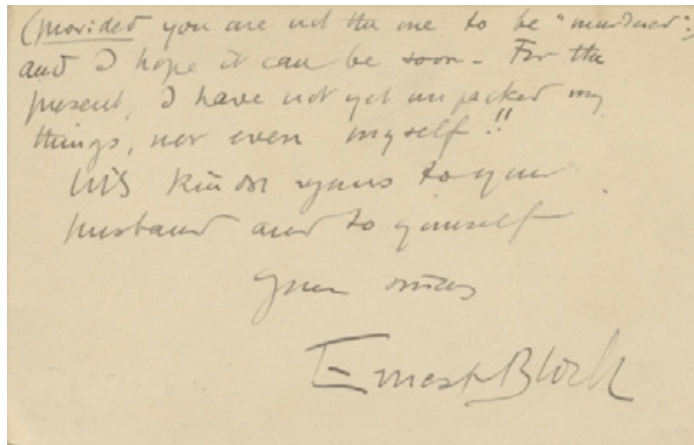 (provided you are not the one to be "murdered";
and I hope it can be soon - For the
present, I have not yet unpacked my
things, nor even myself!!
With kindest regards to your
husband and to yourself
Yours sincerely
Ernest Bloch